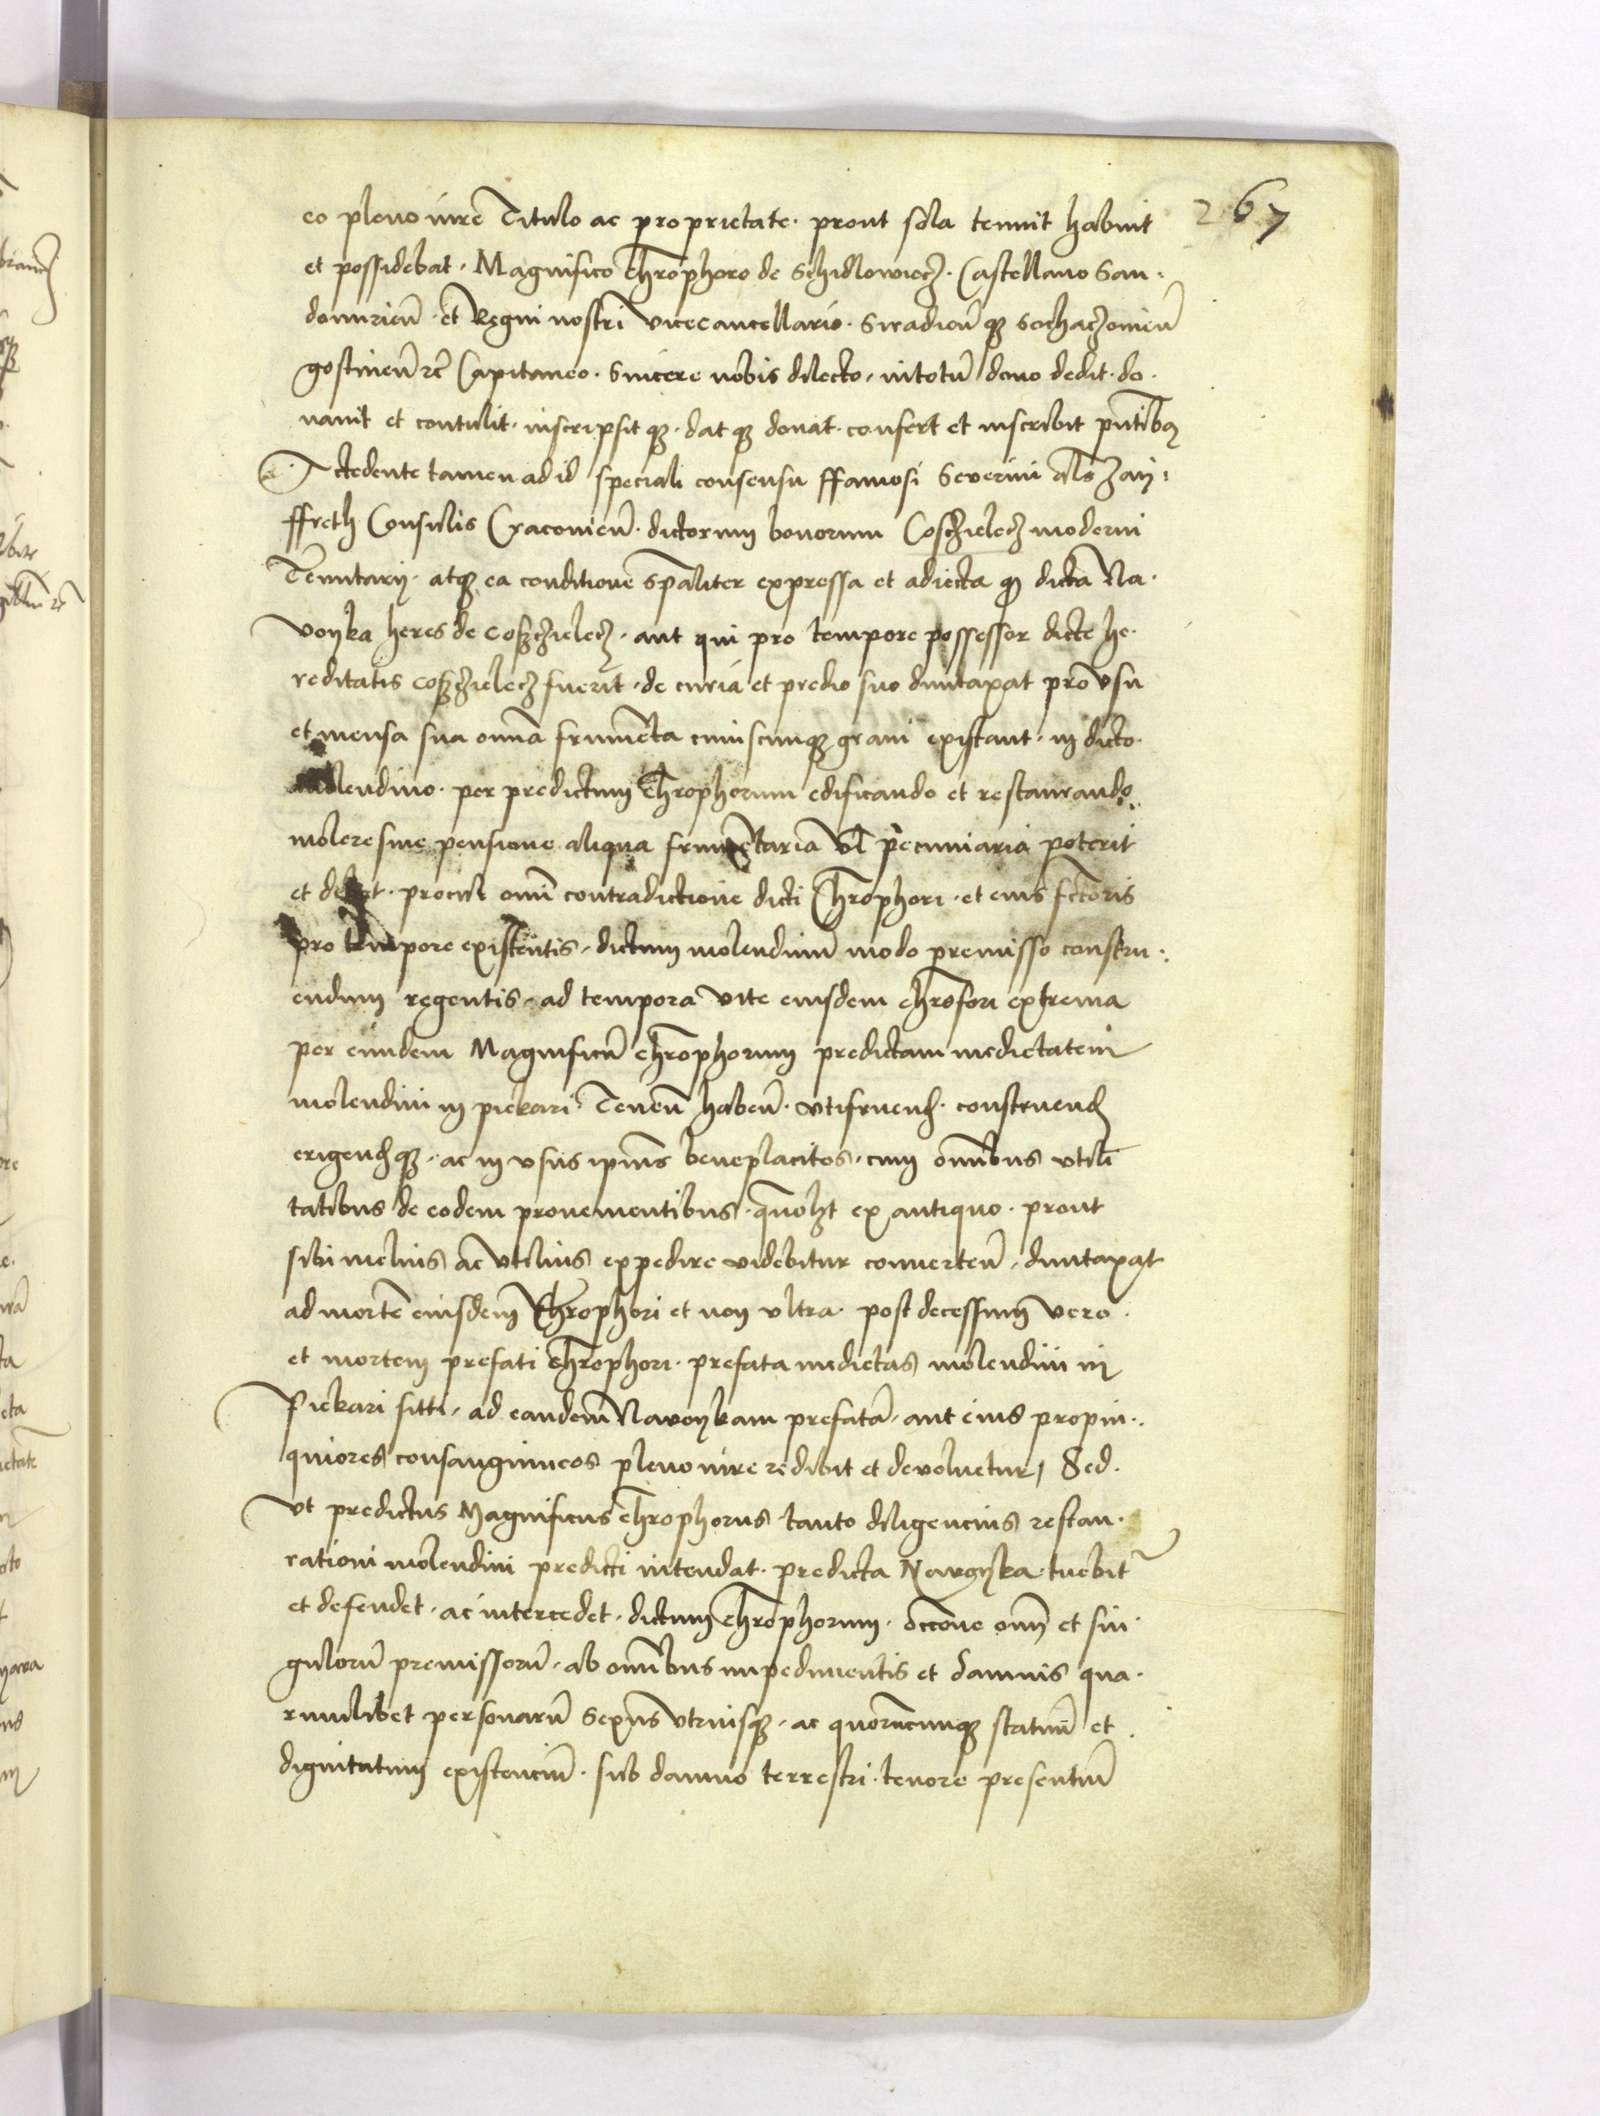 267
eo pleno iure Titulo ac proprietate. prout sola tenuit habuit
et possidebat. Magnifico Chrophoro de Schidlowiecz. Castellano San-
domirien. et Regni nostri Vicecancellario. Siradien qz Sochaczouien
gostinen zc Capitaneo. Sincere nobis dilecto. intotu dono dedit. do-
nauit et contulit. inscripsit qz. dat qz donat. confert et inscribit pntibq
Accedente tamen ad id speciali consensu ffamosi Seuerini als Zay-
ffreth Consulis Cracouien. dictorum bonorum Cosczielecz moderni
Tenutarij. atqz ea conditione spaliter expressa et adiecta q dicta Na-
voyka heres de Coszczielecz. aut qui pro tempore possessor dicte he-
reditatis Coszczielecz fuerit. de curia et predio suo duntaxat pro vsu
et mensa sua omnia frumeta cuiuscunqz grani existant. in dicto
molendino. per predictum Chrophorum edificando et restaurando
molere sine pensione aliqua frumetaria vl pecuniaria poterit
et debet. procul omi contradictione dicti Chrophori. et eius fctoris
pro tempore existentis. dictum molendinu modo premisso constru-
endum regentis. ad tempora vite eiusdem chrofori extrema
per eundem Magnificu Chrophorum predictam medietatem
molendini in piekari. Tenen haben. vtifruend. construend
erigendqz. ac in vsus ipius beneplacitos. cum omibus vtili
tatibus de eodem prouenientibus. quolzt ex antiquo. prout
sibi melius ac vtilius expedire videbitur conuerten. duntaxat
ad morte eiusdem Chrophori et non vltra. post decessum vero
et mortem prefati Chrophori. prefata medietas molendini in
Piekari sitti. ad eandem Navoykam prefata. aut eius propin-
quiores consanguineos pleno iure redibit et deuoluetur, Sed
vt predictus Magnificus Chrophorus tanto diligencius restau-
rationi molendini predicti intendat. predicta Navoyka. tuebit
et defendet. ac intercedet. dictum Chrophorum. occone omi et sin-
guloru premissoru. ab omibus impedimentis et damnis qua-
rumlibet personaru sexus vtriusqz. ac quorucunqz statuu et
dignitatum existenciu. sub damno terrestri. tenore presentiu